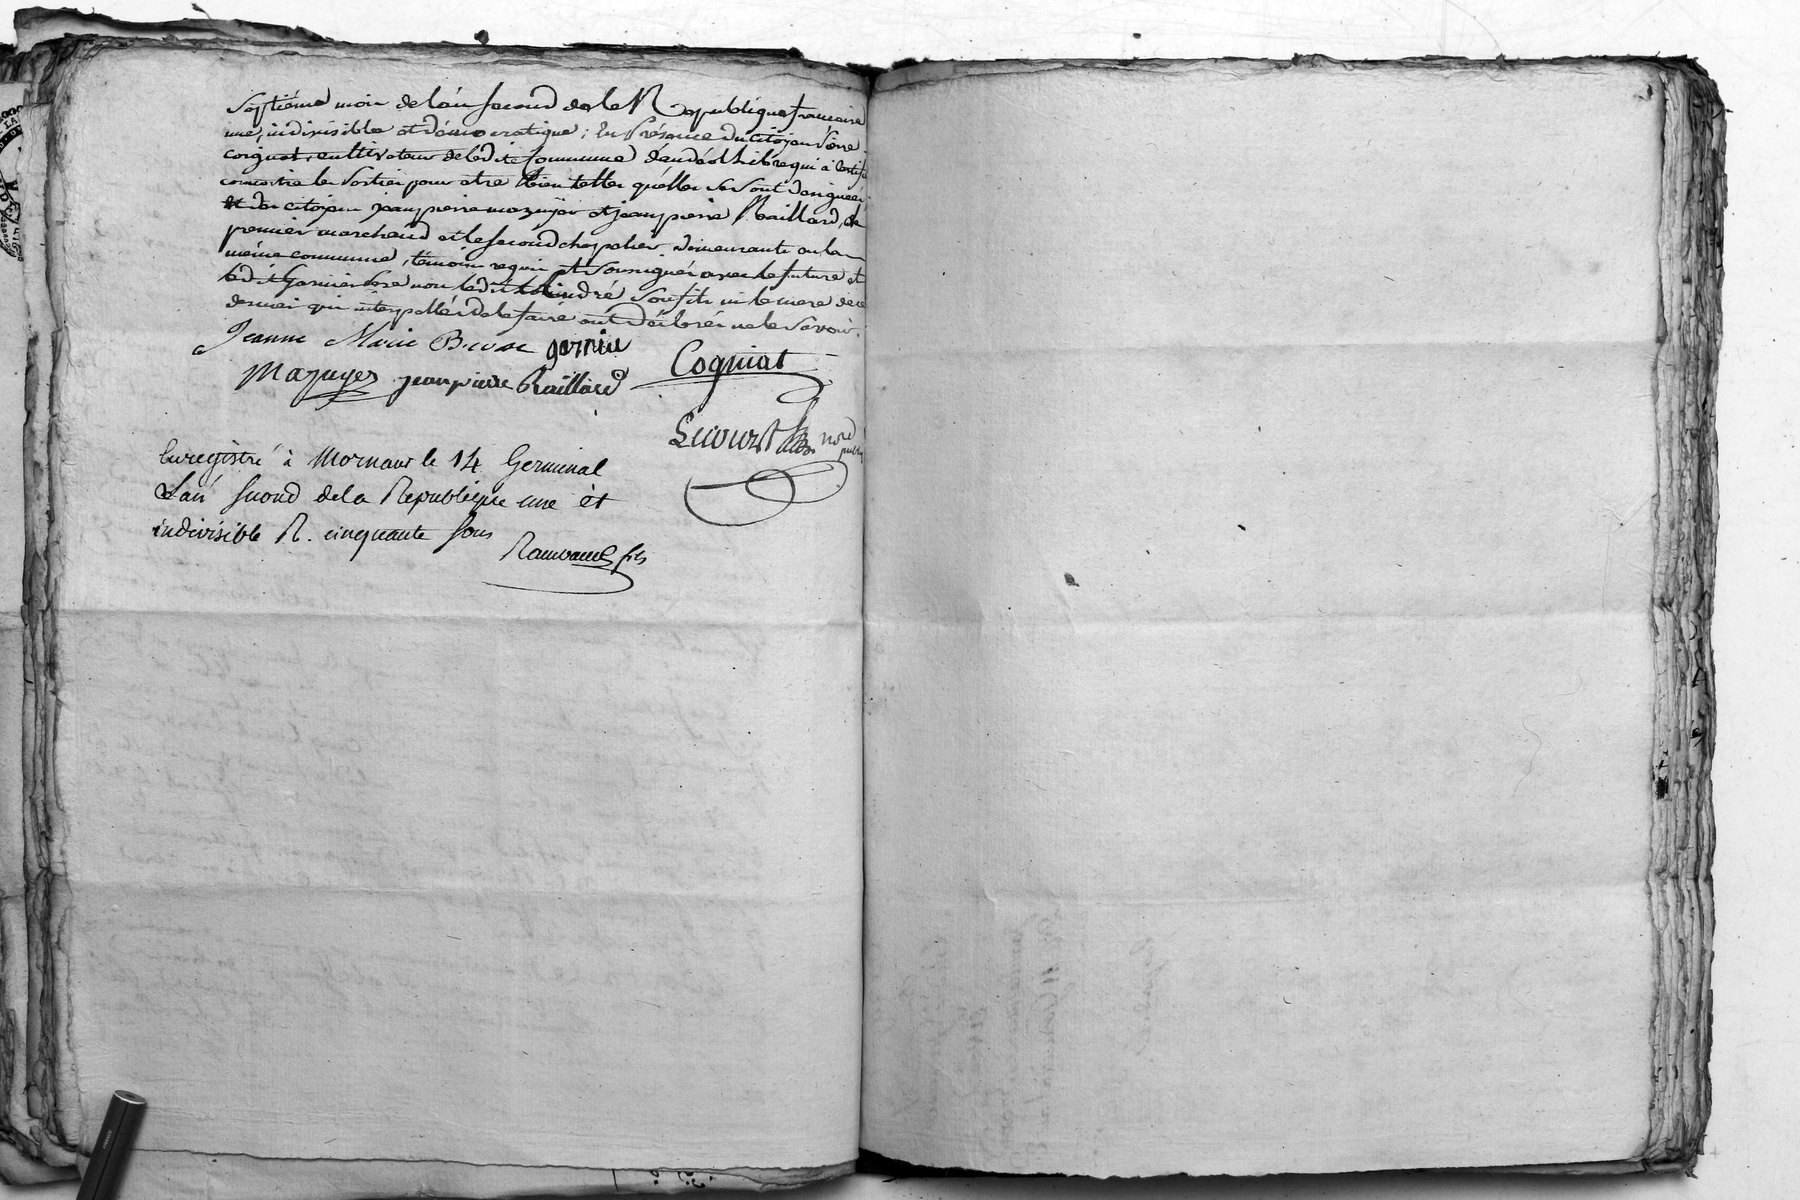 Septiéme mois de l'an second de la Republique francaise
une, indivisible et démocratique; En Présance du citoyen Pierre
Cogniat, cultivateur de ladite Commune d'andéol Libre qui a certifié
connoitre les Parties pour etre bien telles quelles se sont designées
Et des citoyens jean pierre mazuyer et jean pierre Raillard, le
premier marchand et le second chapelier demeurants en la
même commune, témoins requis et soussignés avec la future et
ledit Garnier Pere non ledit andré Son fils ni la mere de ce
dernier qui interpellés de le faire ont déclarés ne le savoir.
Jeanne Marie garnier
Cogniat
Mazuyer jean pierre Raillard
Lecourt nore public
Enregistré à Mornant le 14 Germinal
L'an second de la Republique une et
indivisible R. cinquante sous
fils